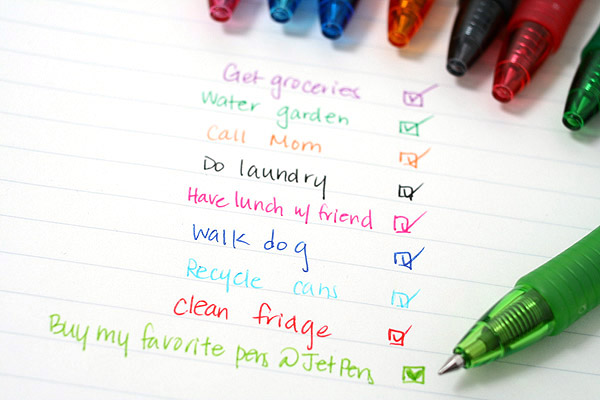 Get groceries
Water garden
Call Mom
Do laundry
Have lunch w/ friend
Walk dog
Recycle cans
Clean fridge
Buy my favorite pens @JetPens